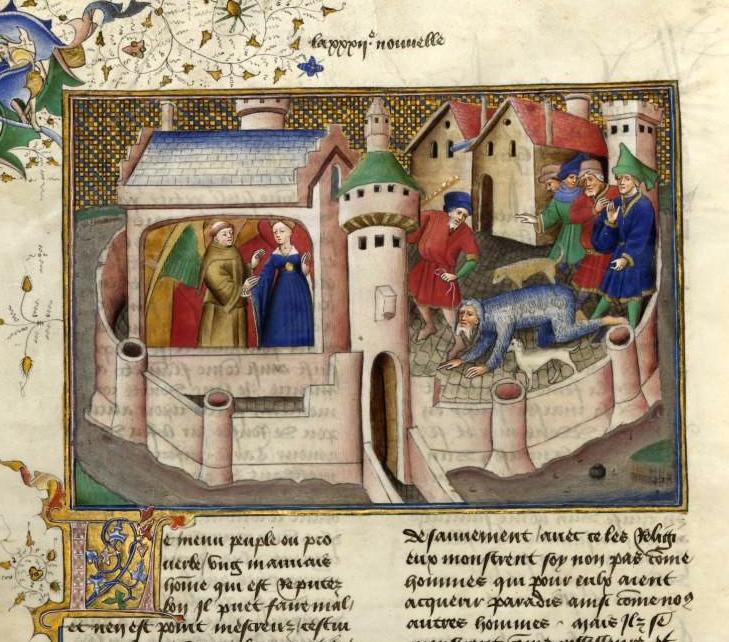 la xxxii.e nouuelle
Le menu peuple ou pro
uerbe / vng mauuais
home qui est repute
bon Il puet faire mal /
et nen est point mescreu / cestui
desauuement / auec ce les Religi
eux monstrent soy non pas come
hommes qui pour eulx aient
acquerir paradis ainsi come nos
autres hommes . mais Ilz se